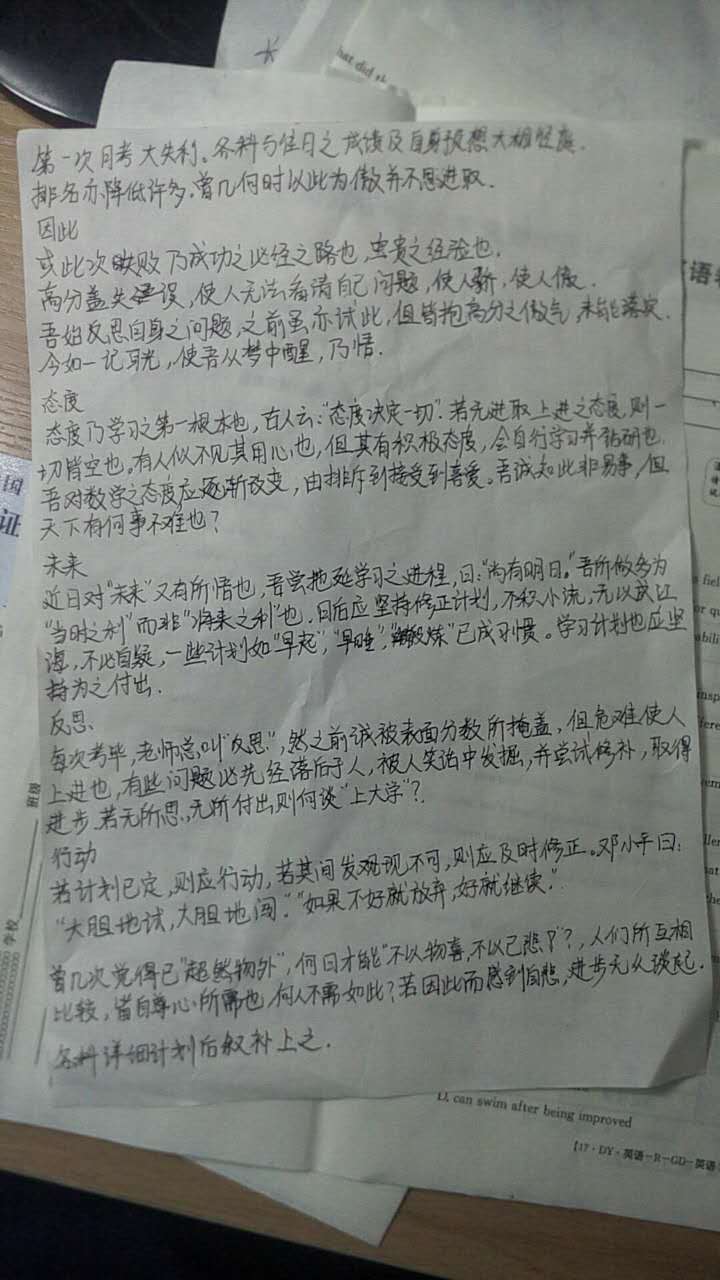 hat did th
第一次月考大失利。各料与往日之成绩及自身预想大相径庭.
排名亦降低许多.曾几何时以此为傲并不思进取.
因此
或此次失败乃成功之必经之路也,宝贵之经验也.
高分盖失误,使人无法看清自己问题,使人骄,使人傲.
吾始反思自身之问题,之前虽亦试此,但皆抱高分之傲气,未能落实.
今如一记耳光,使吾从梦中醒,乃悟.
态度
态度乃学习之第一根本也,古人云:“态度决定一切”.若无进取上进之态度,则一
切皆空也。有人似不见其用心也,但其有积极态度,会自行学习并钻研也.
吾对数学之态度应逐渐改变,由排斥到接受到喜爱。吾诚知此非易事,但
天下有何事不难也?
未来
近日对“未来”又有所悟也,吾尝拖延学习之进程,曰:“尚有明日。”吾所做多为
“当时之利”而非“将来之利”也,日后应坚持修正计划,不积小流,无以成江
海,不必自疑,一些计划如“早起”,“早睡”,“锻炼”已成习惯。学习计划也应坚
持为之付出.
反思
每次考毕,老师总叫“反思”,然之前诚被表面分数所掩盖,但危难使人
上进也,有些问题必先经落后于人,被人笑话中发掘,并尝试修补,取得
进步.若无所思,无所付出,则何谈“上大学”?
行动
若计划已定,则应行动,若其间发观现不可,则应及时修正。邓小平曰:
“大胆地试,大胆地闯”.“如果不好就放弃,好就继续”.
曾几次觉得已“超然物外”,何日才能“不以物喜,不以己悲”?,人们所互相
比较,皆自尊心所需也,何人不需如此?若因此而感到自悲,进步无从谈起.
各料详细计划后叙补上之.
国
证
班级
学校
语
D. can swim after being improved
【17·DY·英语-R-GD-英语